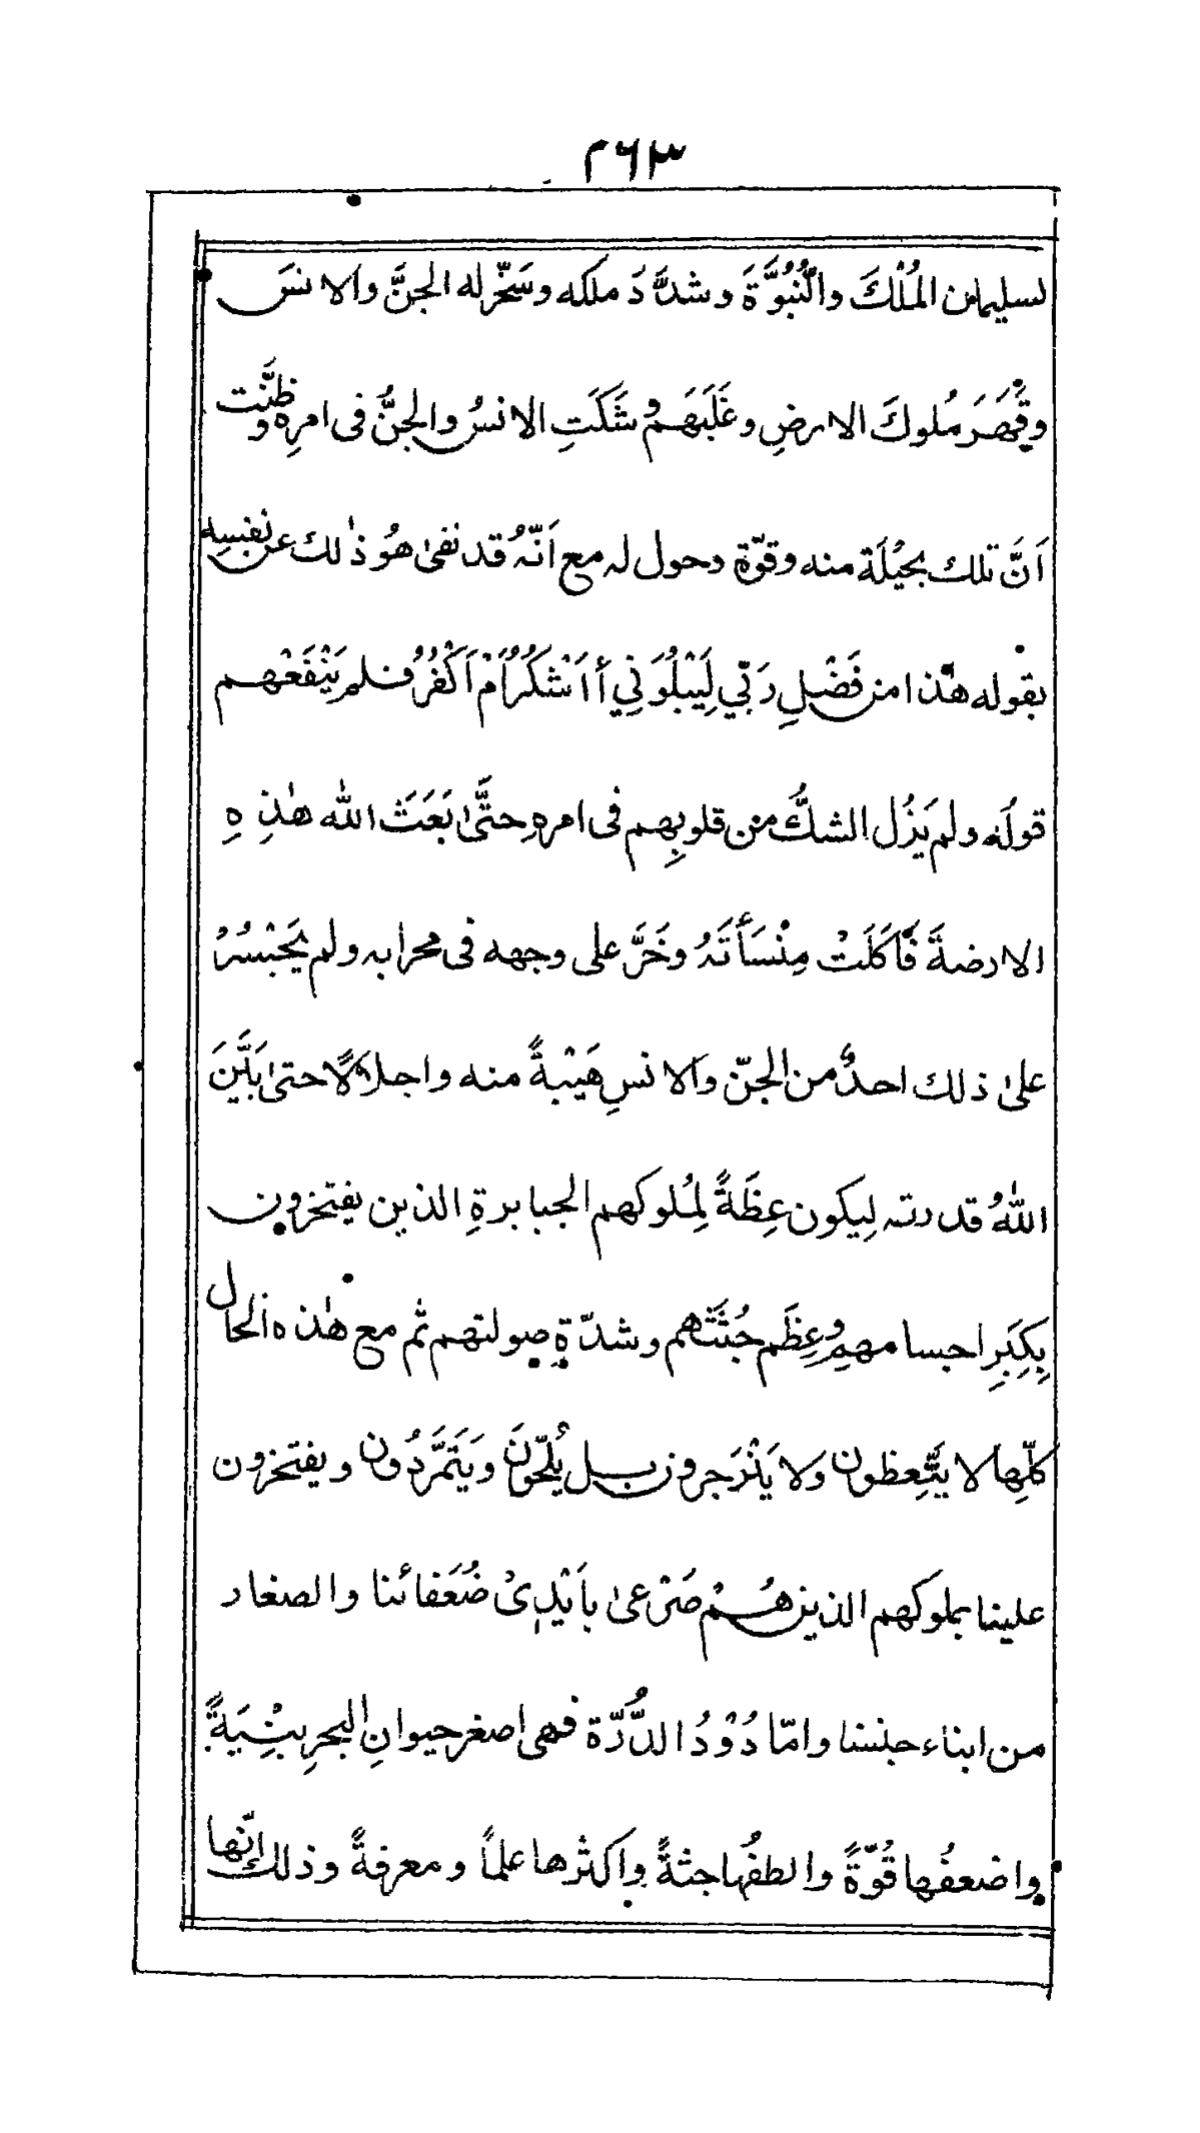 ٢٦٣
لسليمان المُلْكَ والنُّبُوَّةَ وشدَّدَ ملكه وسَخّر له الجنَّ والانسَ
وقَهَرَ مُلوكَ الارضِ وغَلَبَهَم وشَكَّتِ الانسُ والجنُّ فى امرِه وظنَّت
اَنَّ تلك بحِيْلَة منه وقوّةٍ وحول له مع اَنّهُ قد نفىٰ هُو ذٰلك عن نفسِه
بقوله هٰذا من فَضْلِ رَبّي لِيَبْلُوَنِي أاَشْكُرُ اَمْ اَكْفُرُ فلم يَنْفَعْهم
قولُه ولم يَزُل الشكُّ من قلوبِهم فى امرهِ حتَّىٰ بَعَثَ الله هٰذِهِ
الارضةَ فَاَكَلَتْ مِنْسَأتَهُ وخَرَّ على وجهه فى محرابه ولم يَجْسُرْ
علىٰ ذلك احدٌ من الجنّ والانسِ هَيْبةً منه واجلالًا حتىٰ بَيَّنَ
اللهُ قدرته لِيكون عِظَةً لِمُلوكهم الجبابرةِ الذين يفتخرون
بِكِبَرِ اجسامهم وعِظَم جُثَثهم وشدّةِ صولتهم ثم مع هٰذه الحال
كلّها لا يتَّعِظون ولا يَنْزَجرون بل يُلحّونَ ويَتَمَرَّدُون ويفتخرون
علينا بملوكهم الذين هُمْ صَرْعىٰ بأيْدِىْ ضُعَفائنا والصغار
من ابناء جنسنا وامّا دُوْدُ الدُّرّة فهى اصغر حيوانِ البحرِ بِنْيَةً
واضعفُها قُوّةً والطفُها جثةً واكثرها علماً ومعرفةً وذلك إنّها